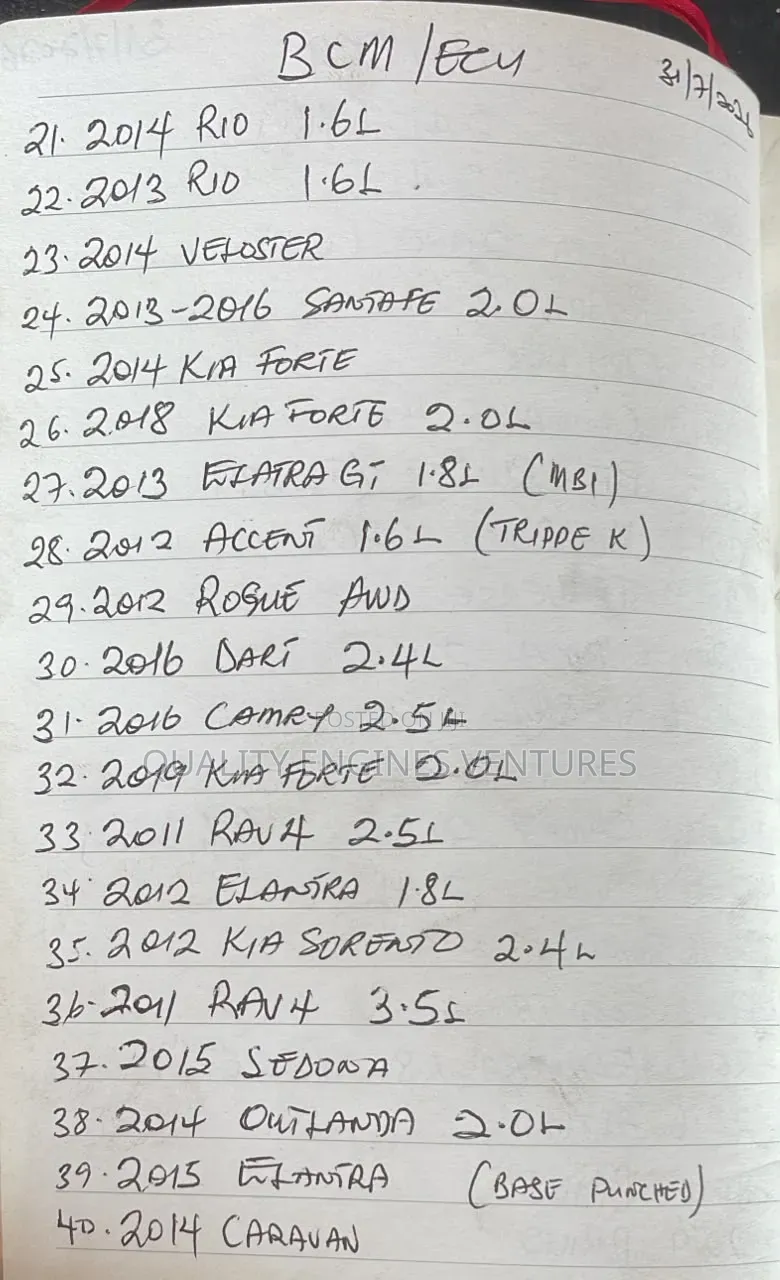 BCM/ECU
31/7/2026
21. 2014 RIO 1.6L
22. 2013 RIO 1.6L.
23. 2014 VELOSTER
24. 2013-2016 SANTAFE 2.0L
25. 2014 KIA FORTE
26. 2018 KIA FORTE 2.0L
27. 2013 ELATRA GT 1.8L (MB1)
28. 2012 ACCENT 1.6L (TRIPPE K)
29. 2012 ROGUE AWD
30. 2016 DART 2.4L
31. 2016 CAMRY 2.5L
POSTED ON JIJI
QUALITY ENGINES VENTURES
32. 2019 KIA FORTE 2.0L
33. 2011 RAV4 2.5L
34. 2012 ELANTRA 1.8L
35. 2012 KIA SORENTO 2.4L
36. 2011 RAV4 3.5L
37. 2015 SEDONA
38. 2014 OUTLANDA 2.0L
39. 2015 ELANTRA (BASE PUNCHED)
40. 2014 CARAVAN